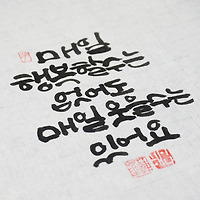 매일
행복할수는
없어도
매일 웃을수는
있어요